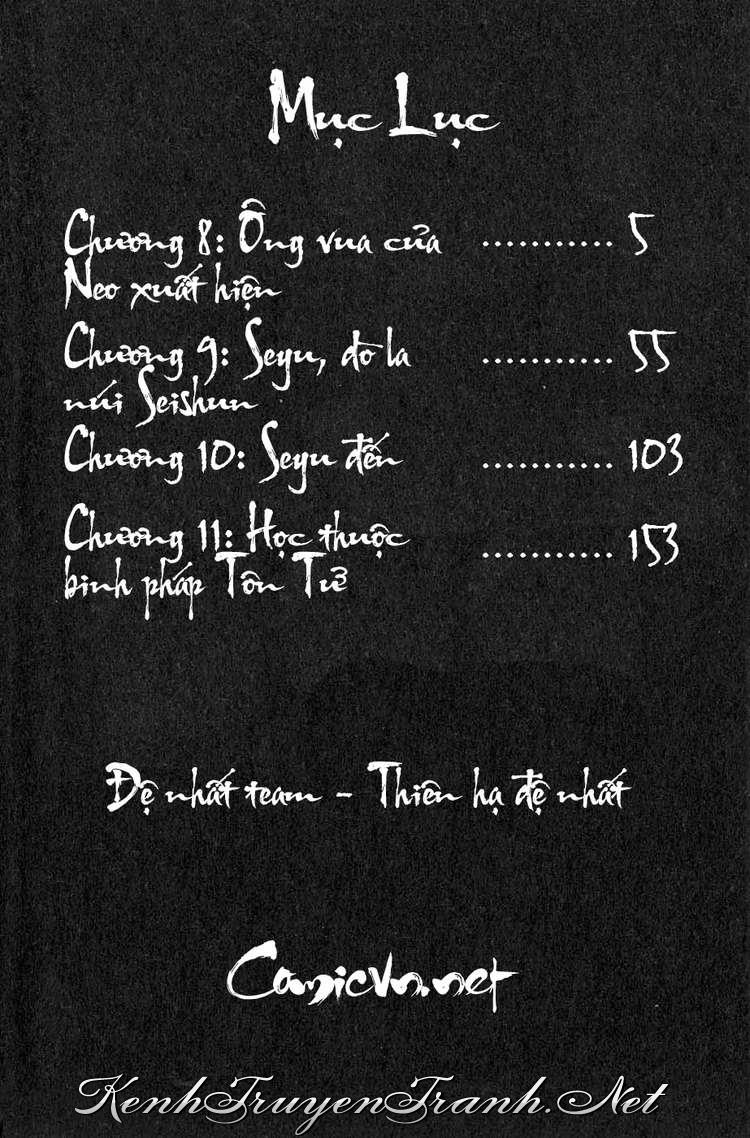 Mục Lục
Chương 8: Ông vua của ........... 5
Neo xuất hiện
Chương 9: Seyu, đo la ........... 55
núi Seishun
Chương 10: Seyu đến ........... 103
Chương 11: Học thuộc ........... 153
binh pháp Tôn Tử
Đệ nhất team - Thiên hạ đệ nhất
Comicvn.net
KenhTruyenTranh.Net